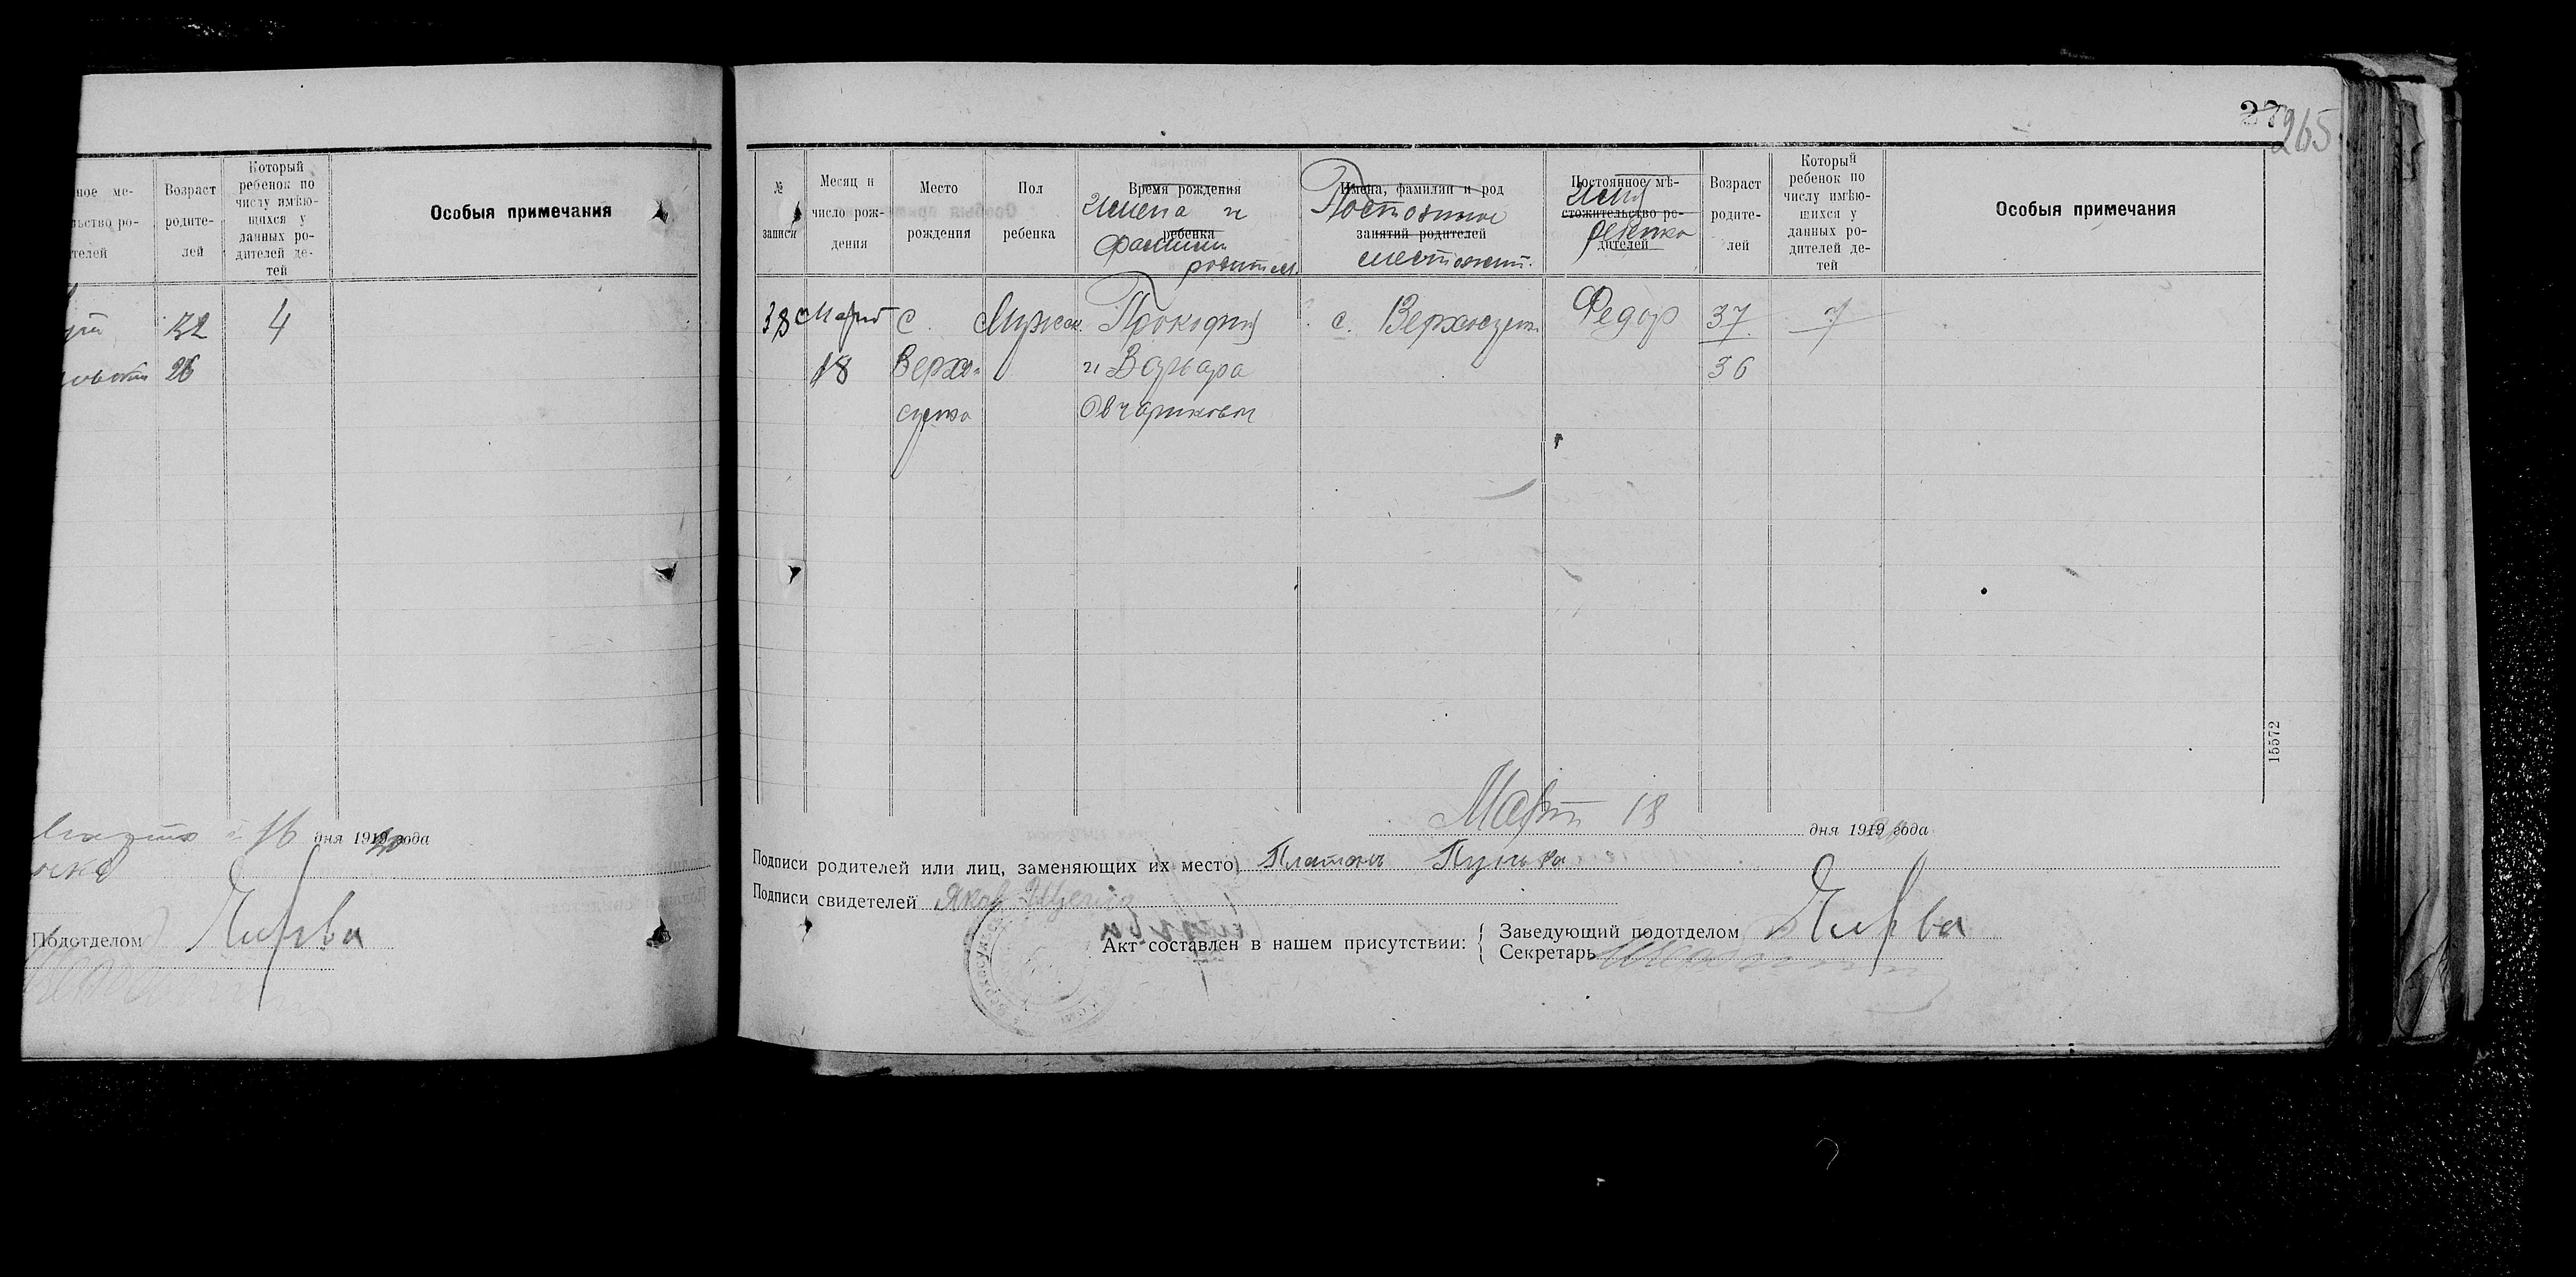 27
265
ное ме-
льство ро-
телей
Возраст
родите-
лей
Который
ребенок по
числу имѣю-
щихся у
данных ро-
дителей де-
тей
Особыя примечания
32
4
26
16 дня 1919 года
Подотделом
Чирва
№
записи
Месяц и
число рож-
дения
Место
рождения
Пол
ребенка
Время рождения
ребенка
Имена и
фамилии
родител.
Имена, фамилии и род
занятий родителей
Постоянное
местожит.
Постоянное мѣ-
стожительство ро-
дителей
Имя
ребенка
Возраст
родите-
лей
Который
ребенок по
числу имѣю-
щихся у
данных ро-
дителей де-
тей
Особыя примечания
38 Март с. Мужск. Прокофий с. Верхосулка Федор 37
18 Верхо- и Варвара 36
сулка Овчариковы
15572
Март 18 дня 1919 года
Подписи родителей или лиц, заменяющих их место) Платонъ
Подписи свидетелей Яков
Акт составлен в нашем присутствии:
Заведующий подотделом Чирва
Секретарь